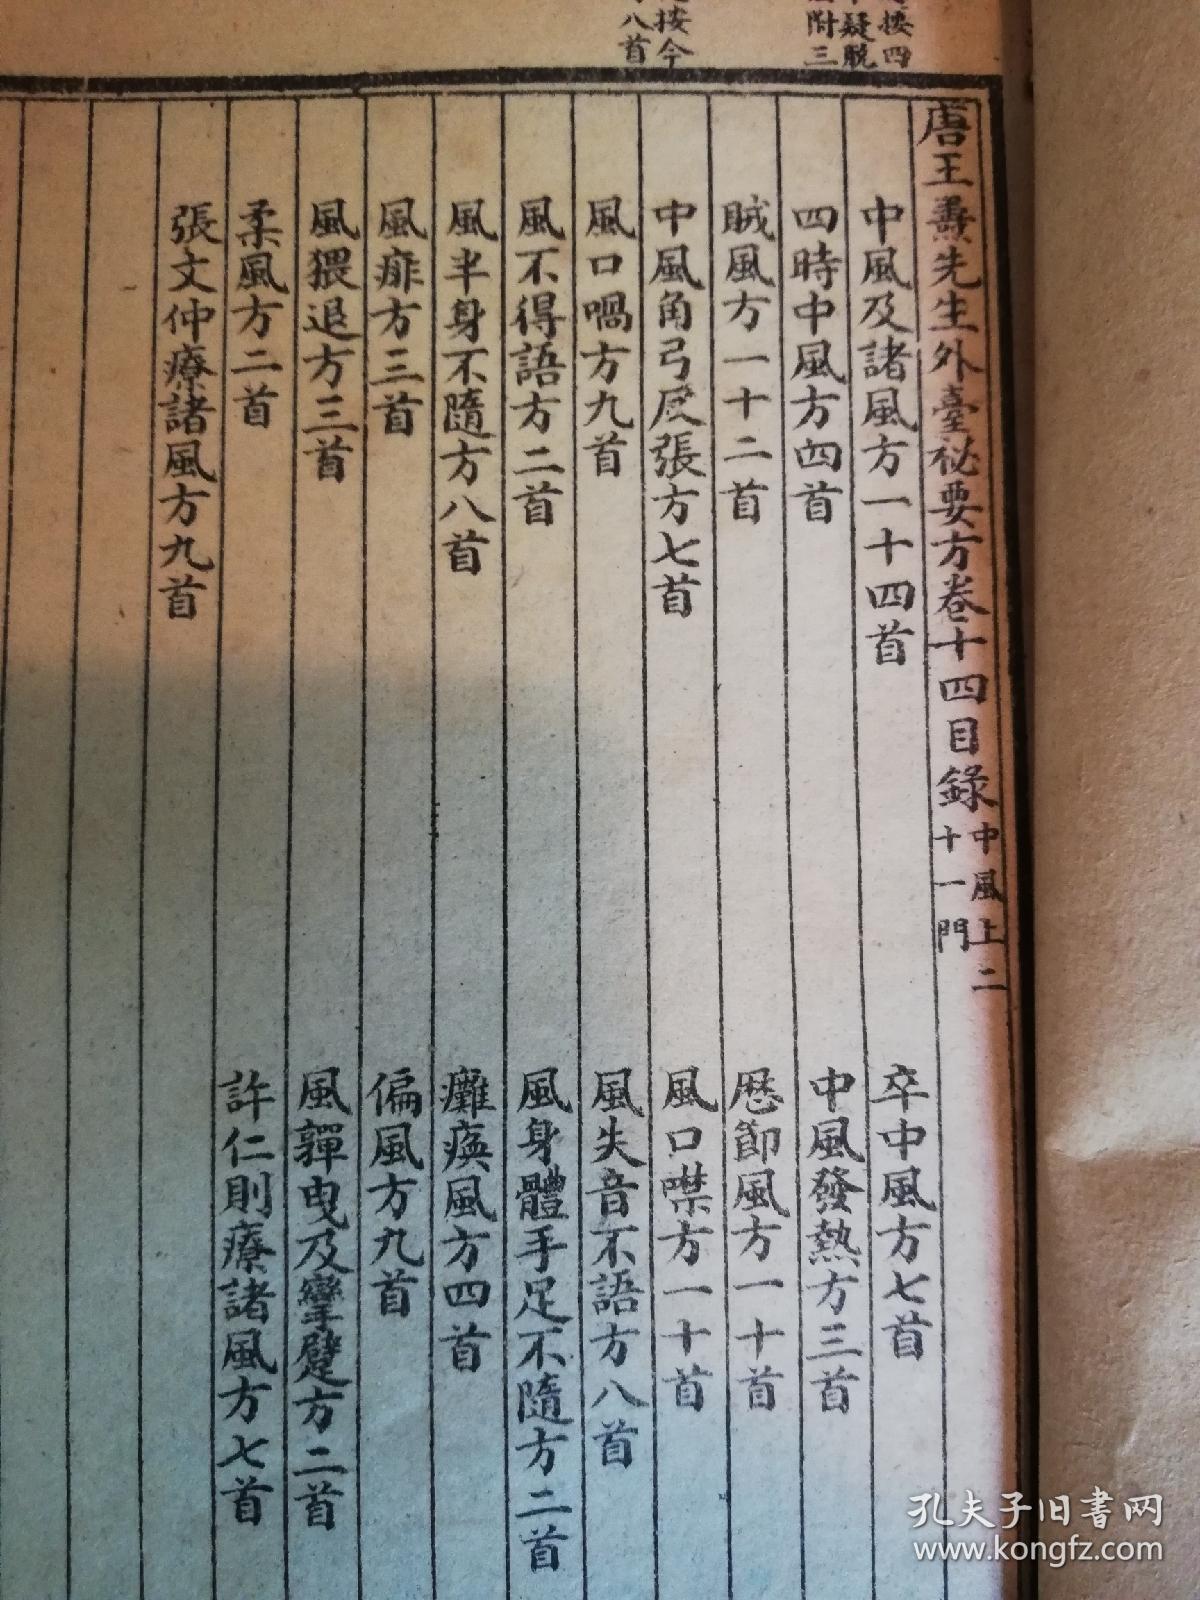 按四
疑脫
附三
按今
八首
唐王燾先生外臺祕要方卷十四目錄 中風上二十一門
中風及諸風方一十四首 卒中風方七首
四時中風方四首 中風發熱方三首
賊風方一十二首 歷節風方一十首
中風角弓反張方七首 風口噤方一十首
風口喎方九首 風失音不語方八首
風不得語方二首 風身體手足不隨方二首
風半身不隨方八首 癱瘓風方四首
風痱方三首 偏風方九首
風猥退方三首 風軃曳及攣躄方二首
柔風方二首 許仁則療諸風方七首
張文仲療諸風方九首
孔夫子旧书网
www.kongfz.com